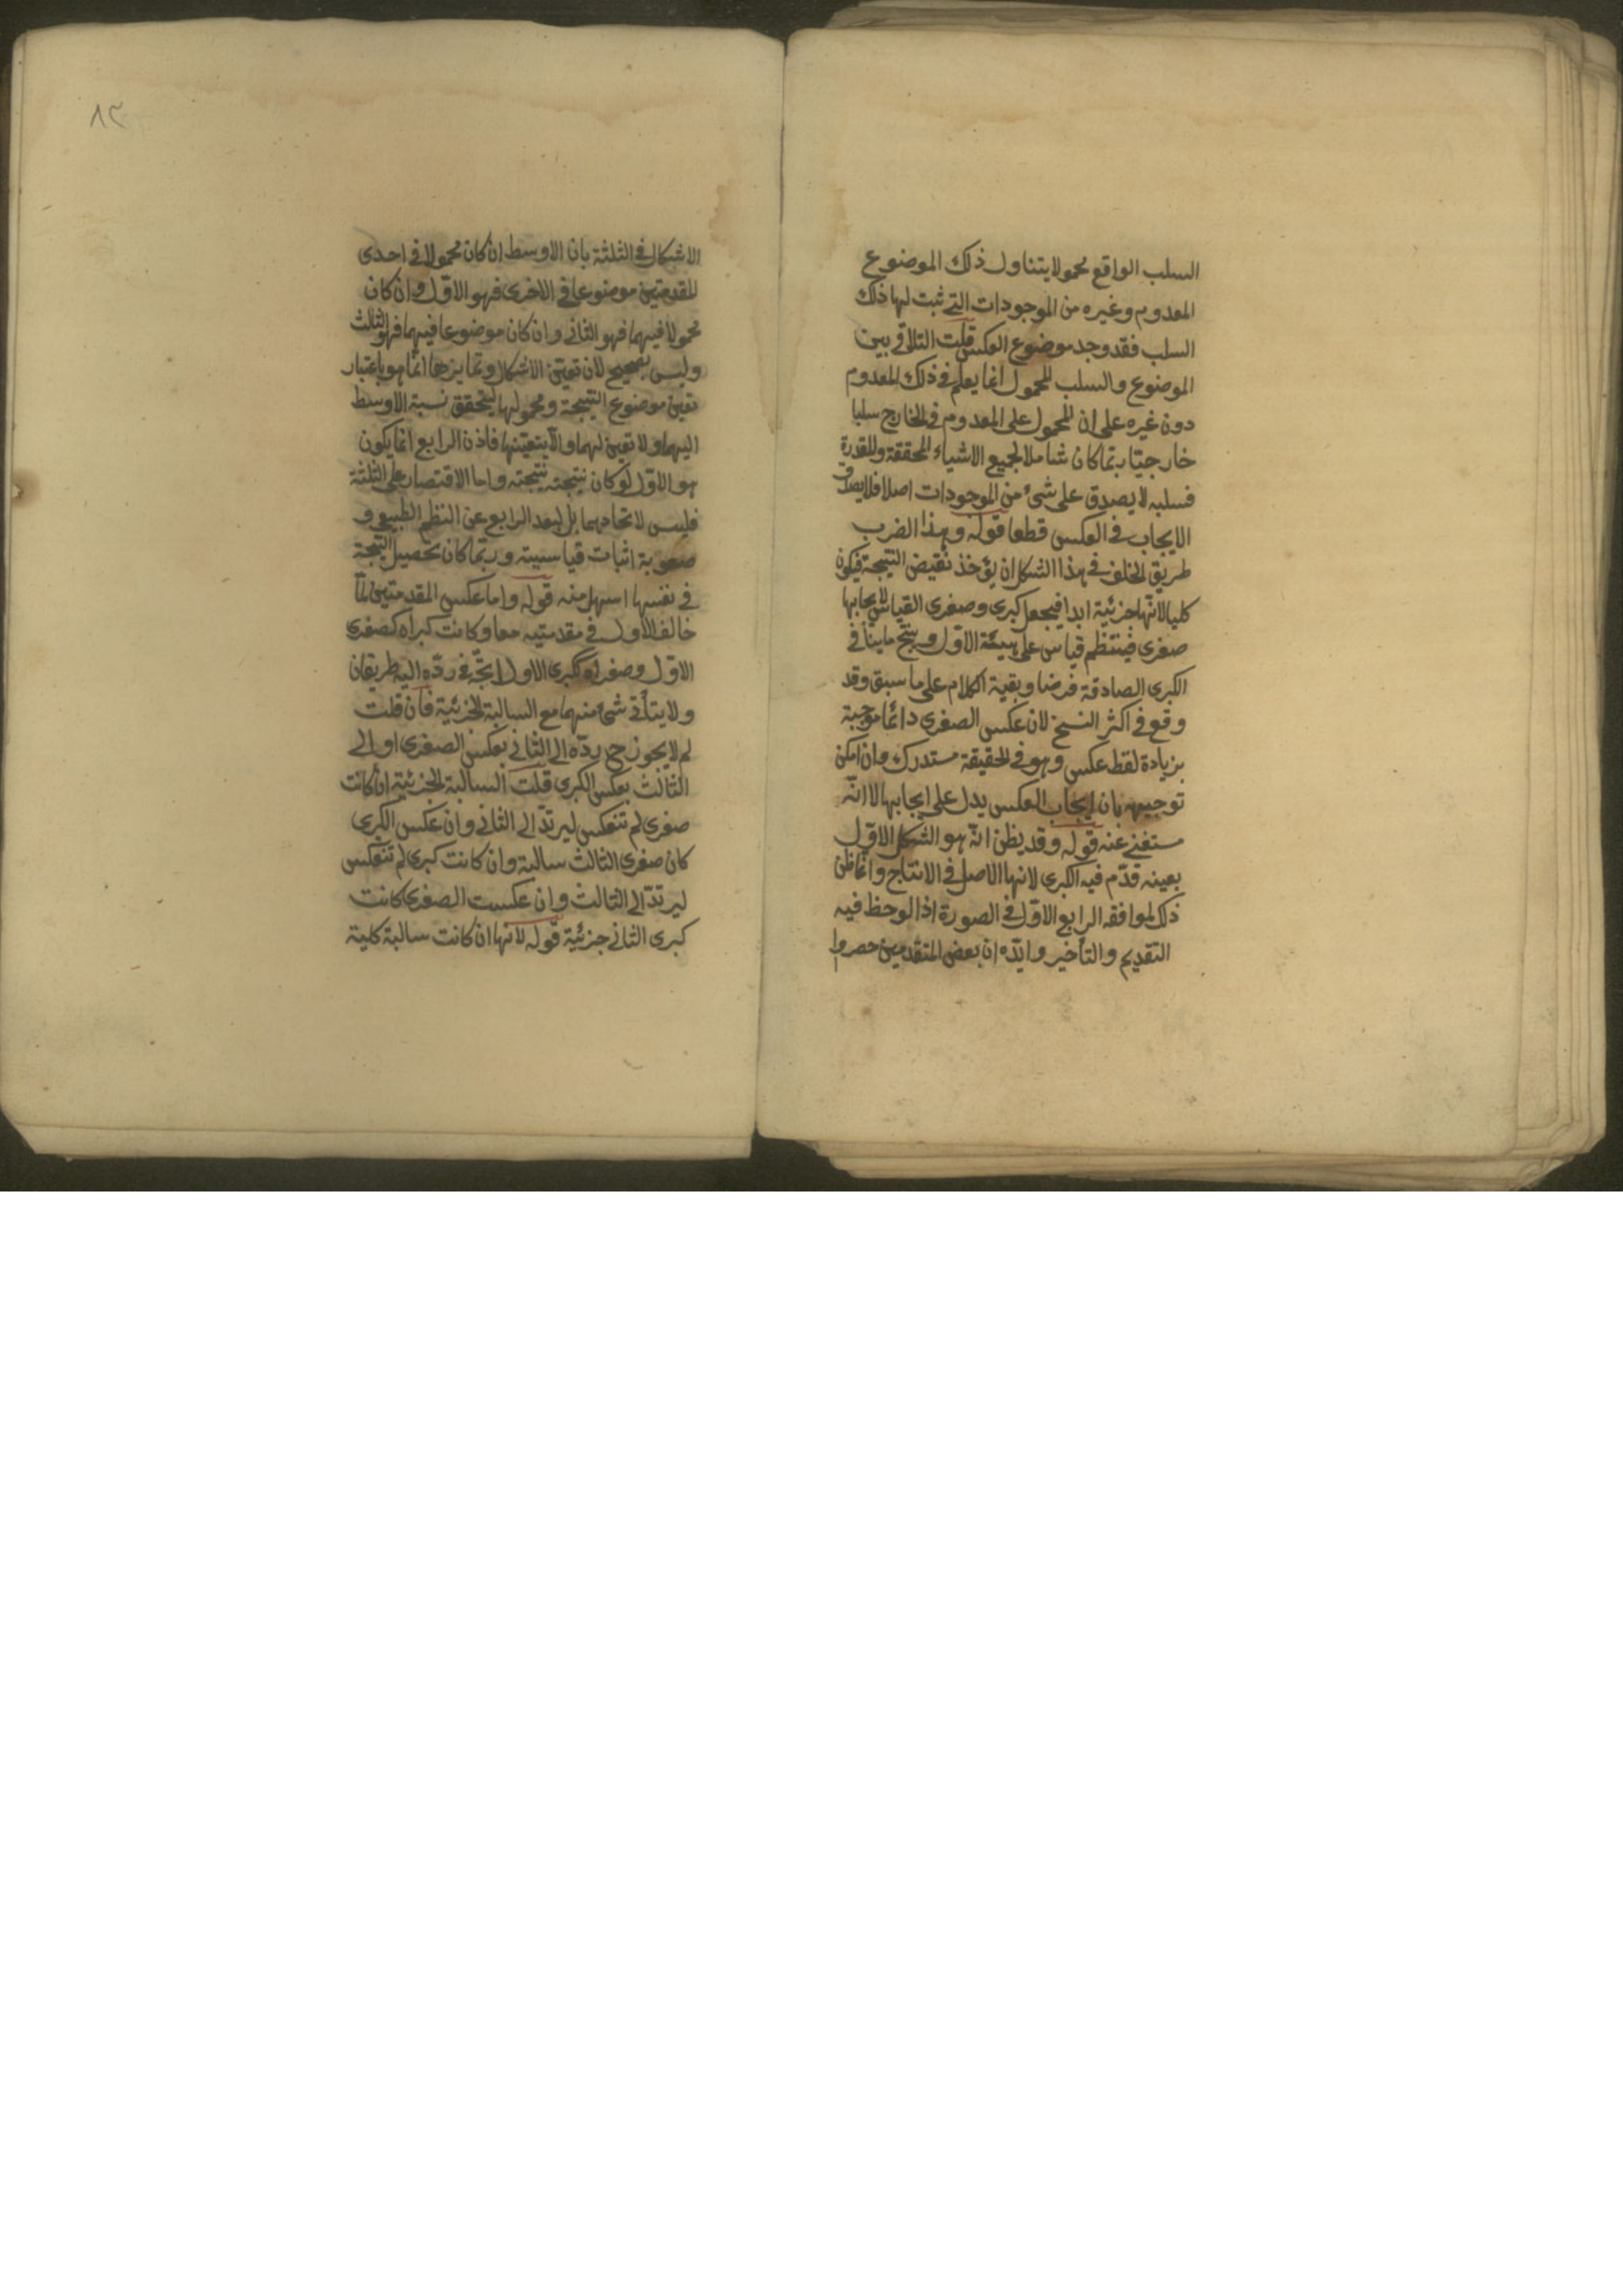 السلب الواقع محمولا يتناول ذلك الموضوع
المعدوم وغيره من الموجودات التى ثبت لها ذلك
السلب فقد وجد موضوع العكس قلت التلاقى بين
الموضوع والسلب المحمول انما يعلم فى ذلك المعدوم
دون غيره على ان المحمول على المعدوم فى الخارج سلبا
خارجيا ربّما كان شاملا لجميع الاشياء المحققة والمقدرة
فسلبه لا يصدق على شئ من الموجودات اصلا فلا يصدق
الايجاب فى العكس قطعا قوله وبهذا الضرب
طريق الخلف فى هذا الشكل ان يؤخذ نقيض النتيجة فيكون
كليا لانّها جزئية ابدا فيجعل كبرى وصغرى القياس لايجابها
صغرى فينتظم قياس على هيئة الاوّل وينتج ما ينافى
الكبرى الصادقة فرضا وبقية الكلام على ما سبق وقد
وقع فى اكثر النسخ لان عكس الصغرى دائما موجبة
بزيادة لفظ عكس وهو فى الحقيقة مستدرك وان امكن
توجيهه بان ايجاب العكس يدل على ايجابها الا انّه
مستغنى عنه قوله وقد يظن انّه هو الشكل الاوّل
بعينه قدّم فيه الكبرى لانها الاصل فى الانتاج وانّما ظن
ذلك لموافقه الرابع الاوّل فى الصورة اذا لوحظ فيه
التقديم والتأخير وايّده ان بعض المتقدمين حصروا
٨٢
الاشكال فى الثلثة بان الاوسط ان كان محمولا فى احدى
المقدمتين موضوعا فى الاخرى فهو الاوّل وان كان
محمولا فيهما فهو الثانى وان كان موضوعا فيهما فهو الثالث
وليس بصحيح لان تعيّن الاشكال وتمايزها انّما هو باعتبار
تعين موضوع النتيجة ومحمولها ليتحقق نسبة الاوسط
اليهما ولا تعين لهما والّا بتعيّنها فاذن الرابع انما يكون
هو الاوّل لو كان نتيجته نتيجته واما الاقتصار على الثلثة
فليس لاتحادهما بل لبعد الرابع عن النظم الطبيعى و
صعوبة اثبات قياسيته وربّما كان تحصيل النتيجة
فى نفسها اسهل منه قوله واما عكس المقدمتين لمّا
خالف الاول فى مقدمتيه معا وكانت كبراه كصغرى
الاوّل وصغراه ككبرى الاول اتّجه فى ردّه اليه طريقان
ولا يتأتى شئ منهما مع السالبة الجزئية فان قلت
لم لا يجوز ح ردّه الى الثانى بعكس الصغرى او الى
الثالث بعكس الكبرى قلت السالبة الجزئية ان كانت
صغرى لم تنعكس ليرتدّ الى الثانى وان عكس الكبرى
كان صغرى الثالث سالبة وان كانت كبرى لم تنعكس
ليرتدّ الى الثالث وان عكست الصغرى كانت
كبرى الثانى جزئية قوله لانها ان كانت سالبة كلية